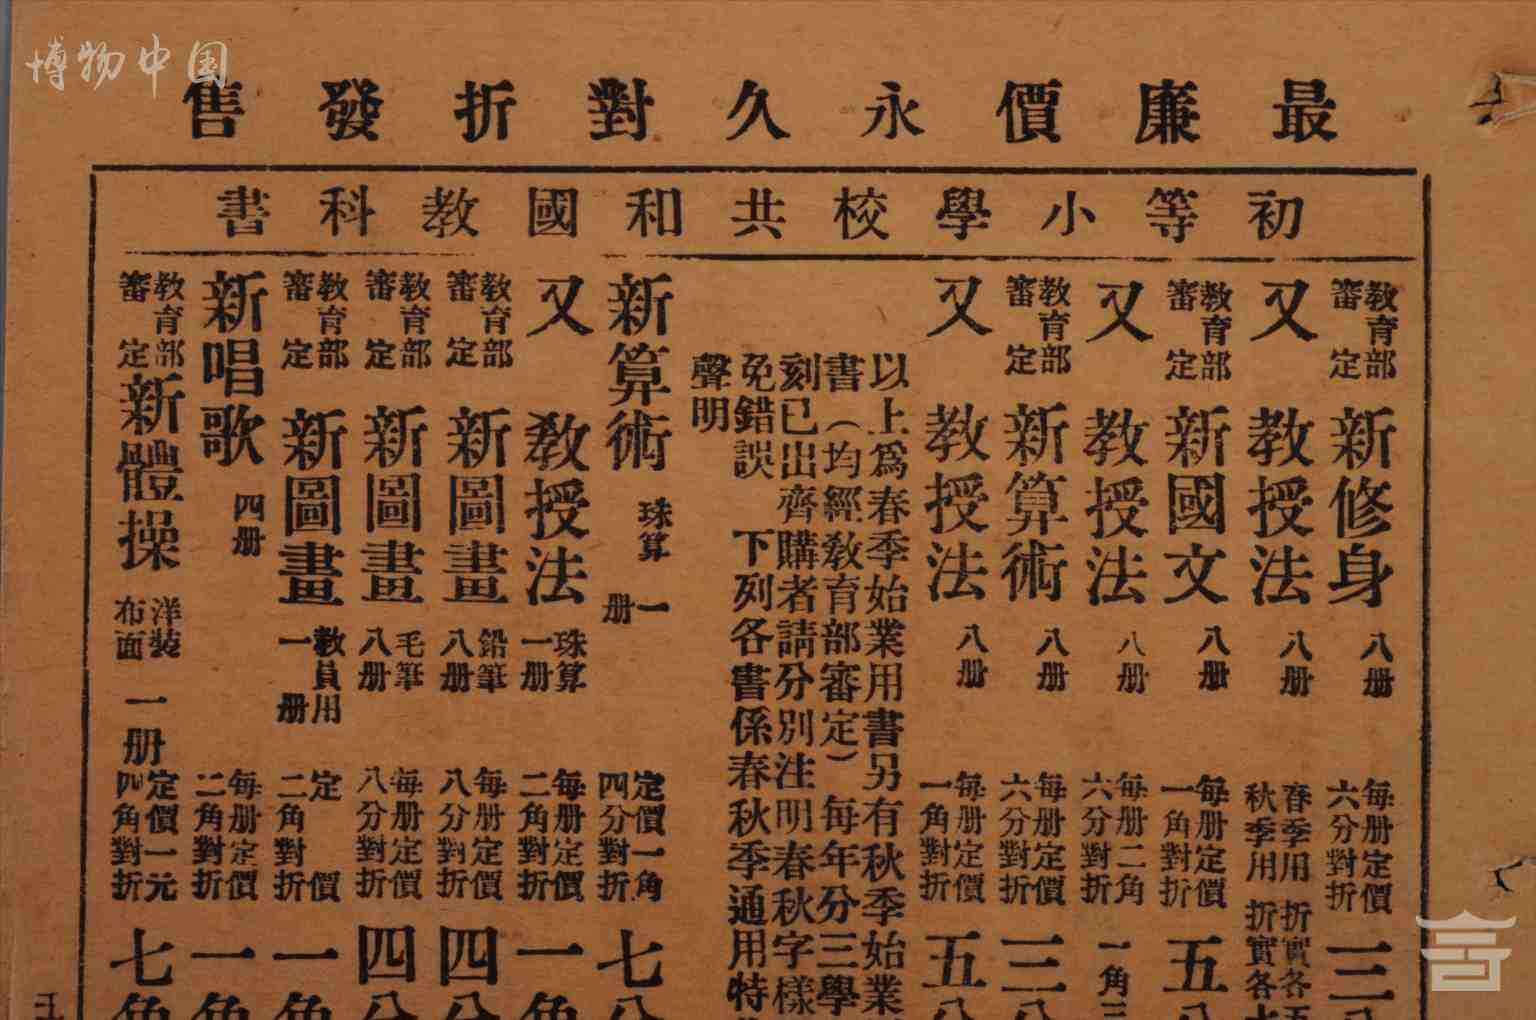 博物中国
最廉價永久對折發售
初等小學校共和國教科書
教育部審定 新修身 八册 每册定價六分對折 三
又 教授法 八册 春季用折實各五 秋季用折實各
教育部審定 新國文 八册 每册定價一角對折 五
又 教授法 八册 每册二角六分對折 一角三
教育部審定 新算術 八册 每册定價六分對折 三
又 教授法 八册 每册定價一角對折 五
以上爲春季始業用書另有秋季始業
書（均經教育部審定）每年分三學
刻已出齊購者請分別注明春秋字樣
免錯誤 下列各書係春秋季通用特
聲明
新算術 珠算一册 定價一角四分對折 七
又 教授法 珠算一册 每册定價二角對折 一角
教育部審定 新圖畫 鉛筆八册 每册定價八分對折 四分
教育部審定 新圖畫 毛筆八册 每册定價八分對折 四分
教育部審定 新圖畫 教員用一册 定價二角對折 一角
新唱歌 四册 每册定價二角對折 一角
教育部審定 新體操 洋裝布面 一册 定價一元四角對折 七角